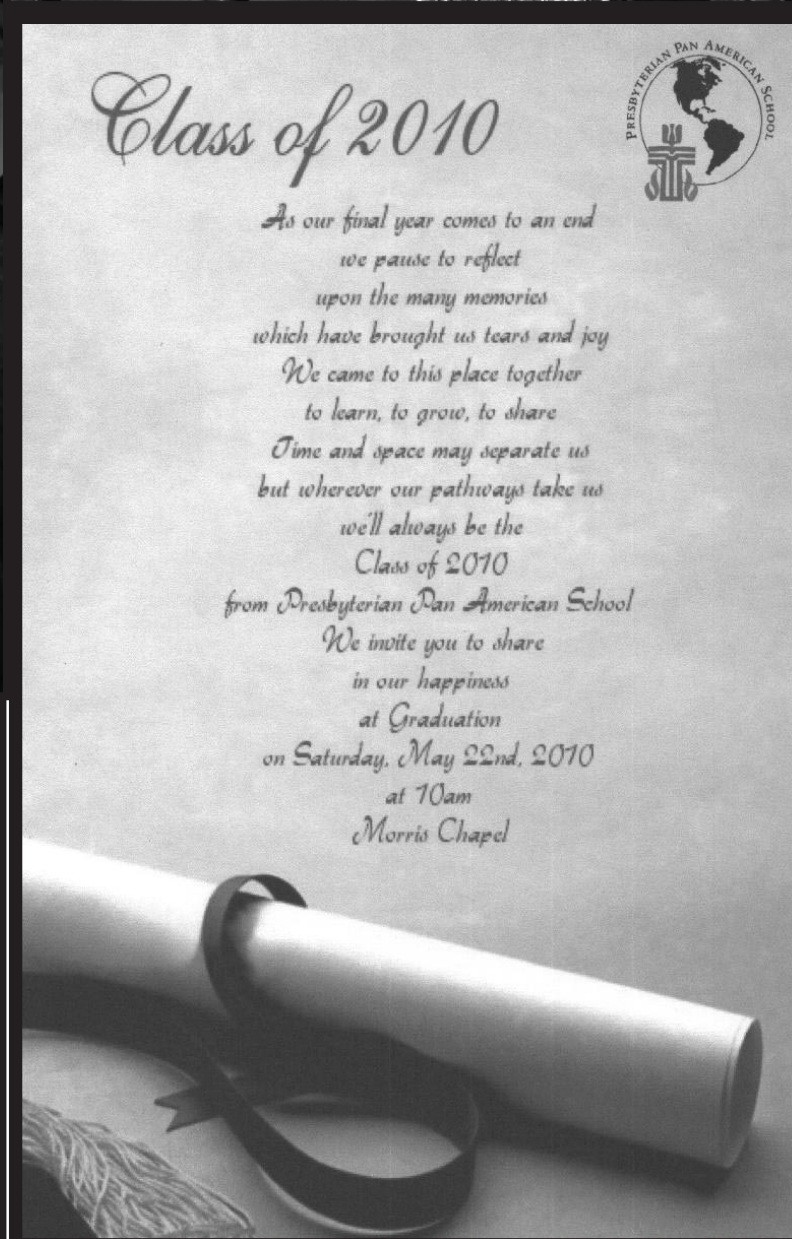 Class of 2010
PRESBYTERIAN PAN AMERICAN SCHOOL
As our final year comes to an end
we pause to reflect
upon the many memories
which have brought us tears and joy
We came to this place together
to learn, to grow, to share
Time and space may separate us
but wherever our pathways take us
we'll always be the
Class of 2010
from Presbyterian Pan American School
We invite you to share
in our happiness
at Graduation
on Saturday, May 22nd, 2010
at 10am
Morris Chapel